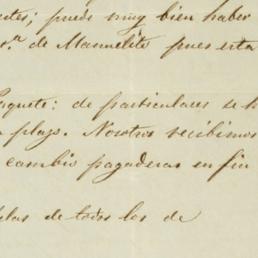 puede muy bien haber
de Manuelito pues esta
Paquete: de particulares se h
plazo. Nosotros recibimos
cambio pagaderas en fin
de todos los de